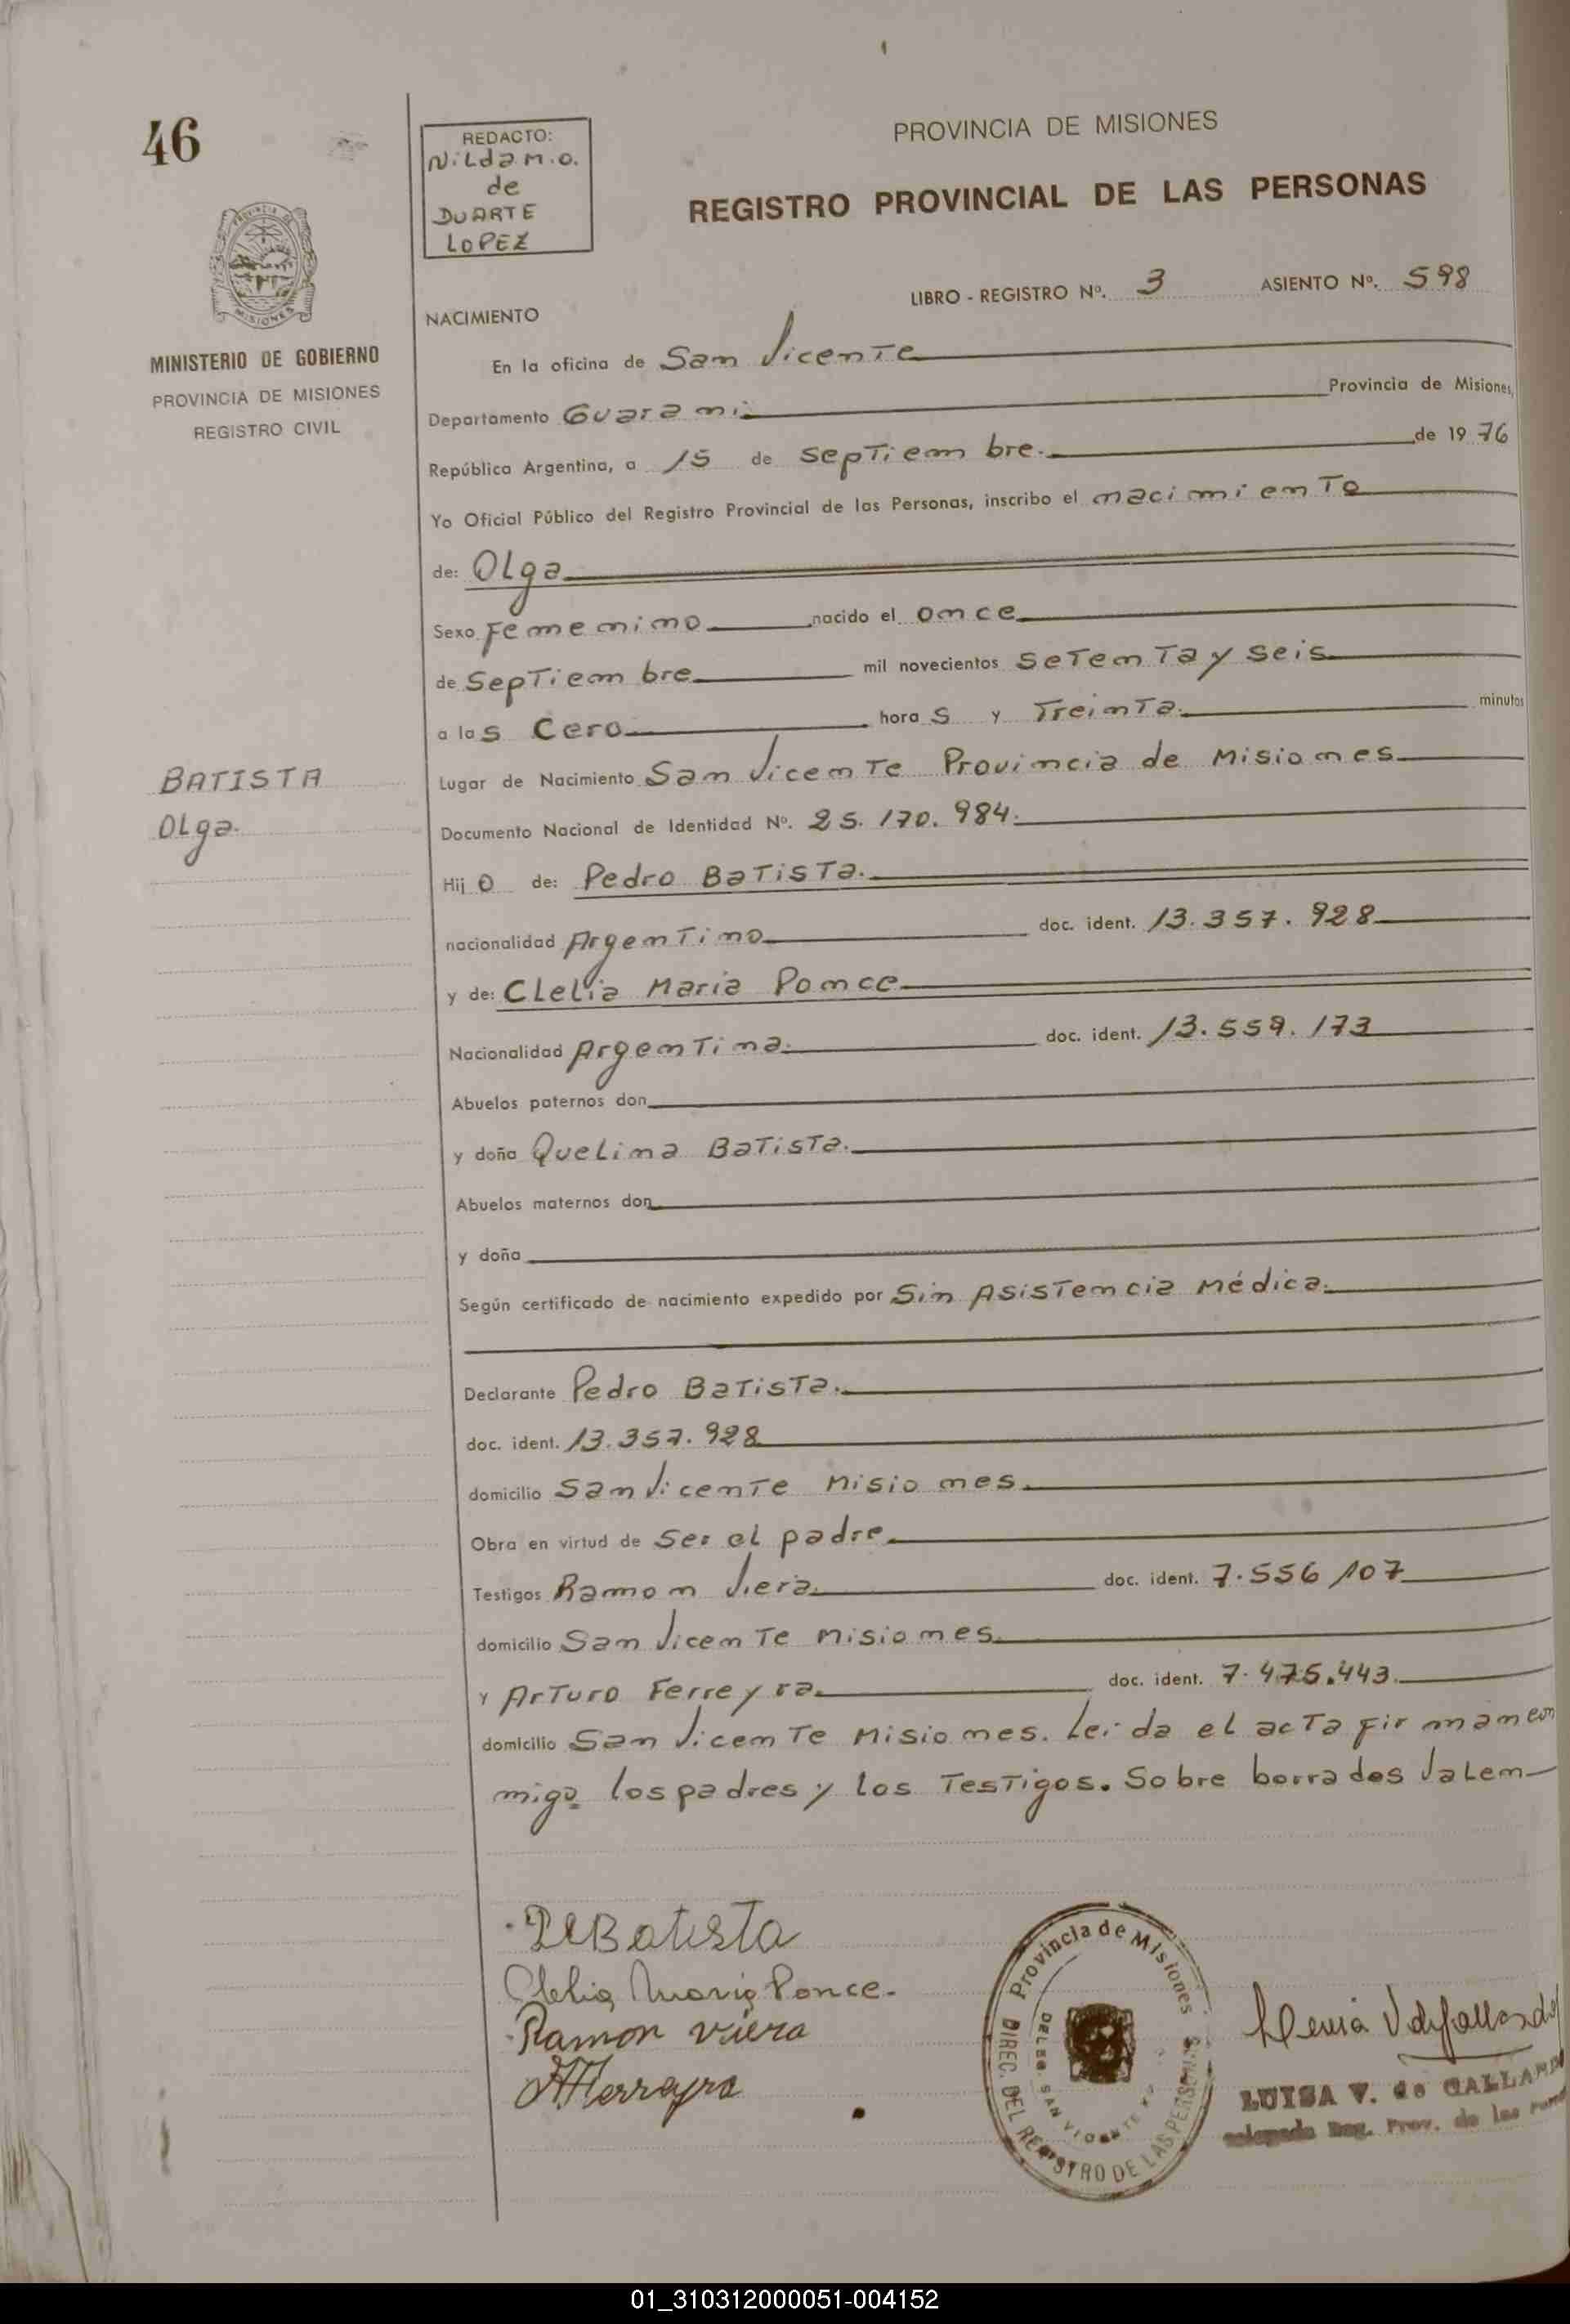 46
REDACTO:
Nilda M.O.
de
DUARTE
LOPEZ
PROVINCIA DE MISIONES
REGISTRO PROVINCIAL DE LAS PERSONAS
PROVINCIA DE
MISIONES
MINISTERIO DE GOBIERNO
PROVINCIA DE MISIONES
REGISTRO CIVIL
LIBRO - REGISTRO Nº. 3 ASIENTO Nº. 598
NACIMIENTO
En la oficina de San Vicente
Departamento Guaraní Provincia de Misiones,
República Argentina, a 15 de Septiembre. de 1976
Yo Oficial Público del Registro Provincial de las Personas, inscribo el nacimiento
de: Olga
Sexo Femenino nacido el once
de Septiembre mil novecientos Setenta y seis
a las Cero horas y Treinta. minutos
Lugar de Nacimiento San Vicente Provincia de Misiones
BATISTA
Olga.
Documento Nacional de Identidad Nº. 25.170.984.
Hijo de: Pedro Batista.
nacionalidad Argentino doc. ident. 13.357.928
y de: Clelia Maria Ponce
Nacionalidad Argentina. doc. ident. 13.559.173
Abuelos paternos don
y doña Quelina Batista.
Abuelos maternos don
y doña
Según certificado de nacimiento expedido por Sin Asistencia Médica.
Declarante Pedro Batista.
doc. ident. 13.357.928
domicilio San Vicente Misiones.
Obra en virtud de Ser el padre
Testigos Ramon Viera. doc. ident. 7.556 107
domicilio San Vicente Misiones.
y Arturo Ferreyra. doc. ident. 7.475.443.
domicilio San Vicente Misiones. Leida el acta firman con
migo los padres y los Testigos. Sobre borrados Valen
Batista
Clelia Maria Ponce.
Ramon Viera
AFerreyra
Provincia de Misiones
DIREC. DEL REGISTRO DE LAS PERSONAS
DELEG. SAN VICENTE
LUISA V. de GALLARDO
Delegada Reg. Prov. de las Pers
01_310312000051-004152